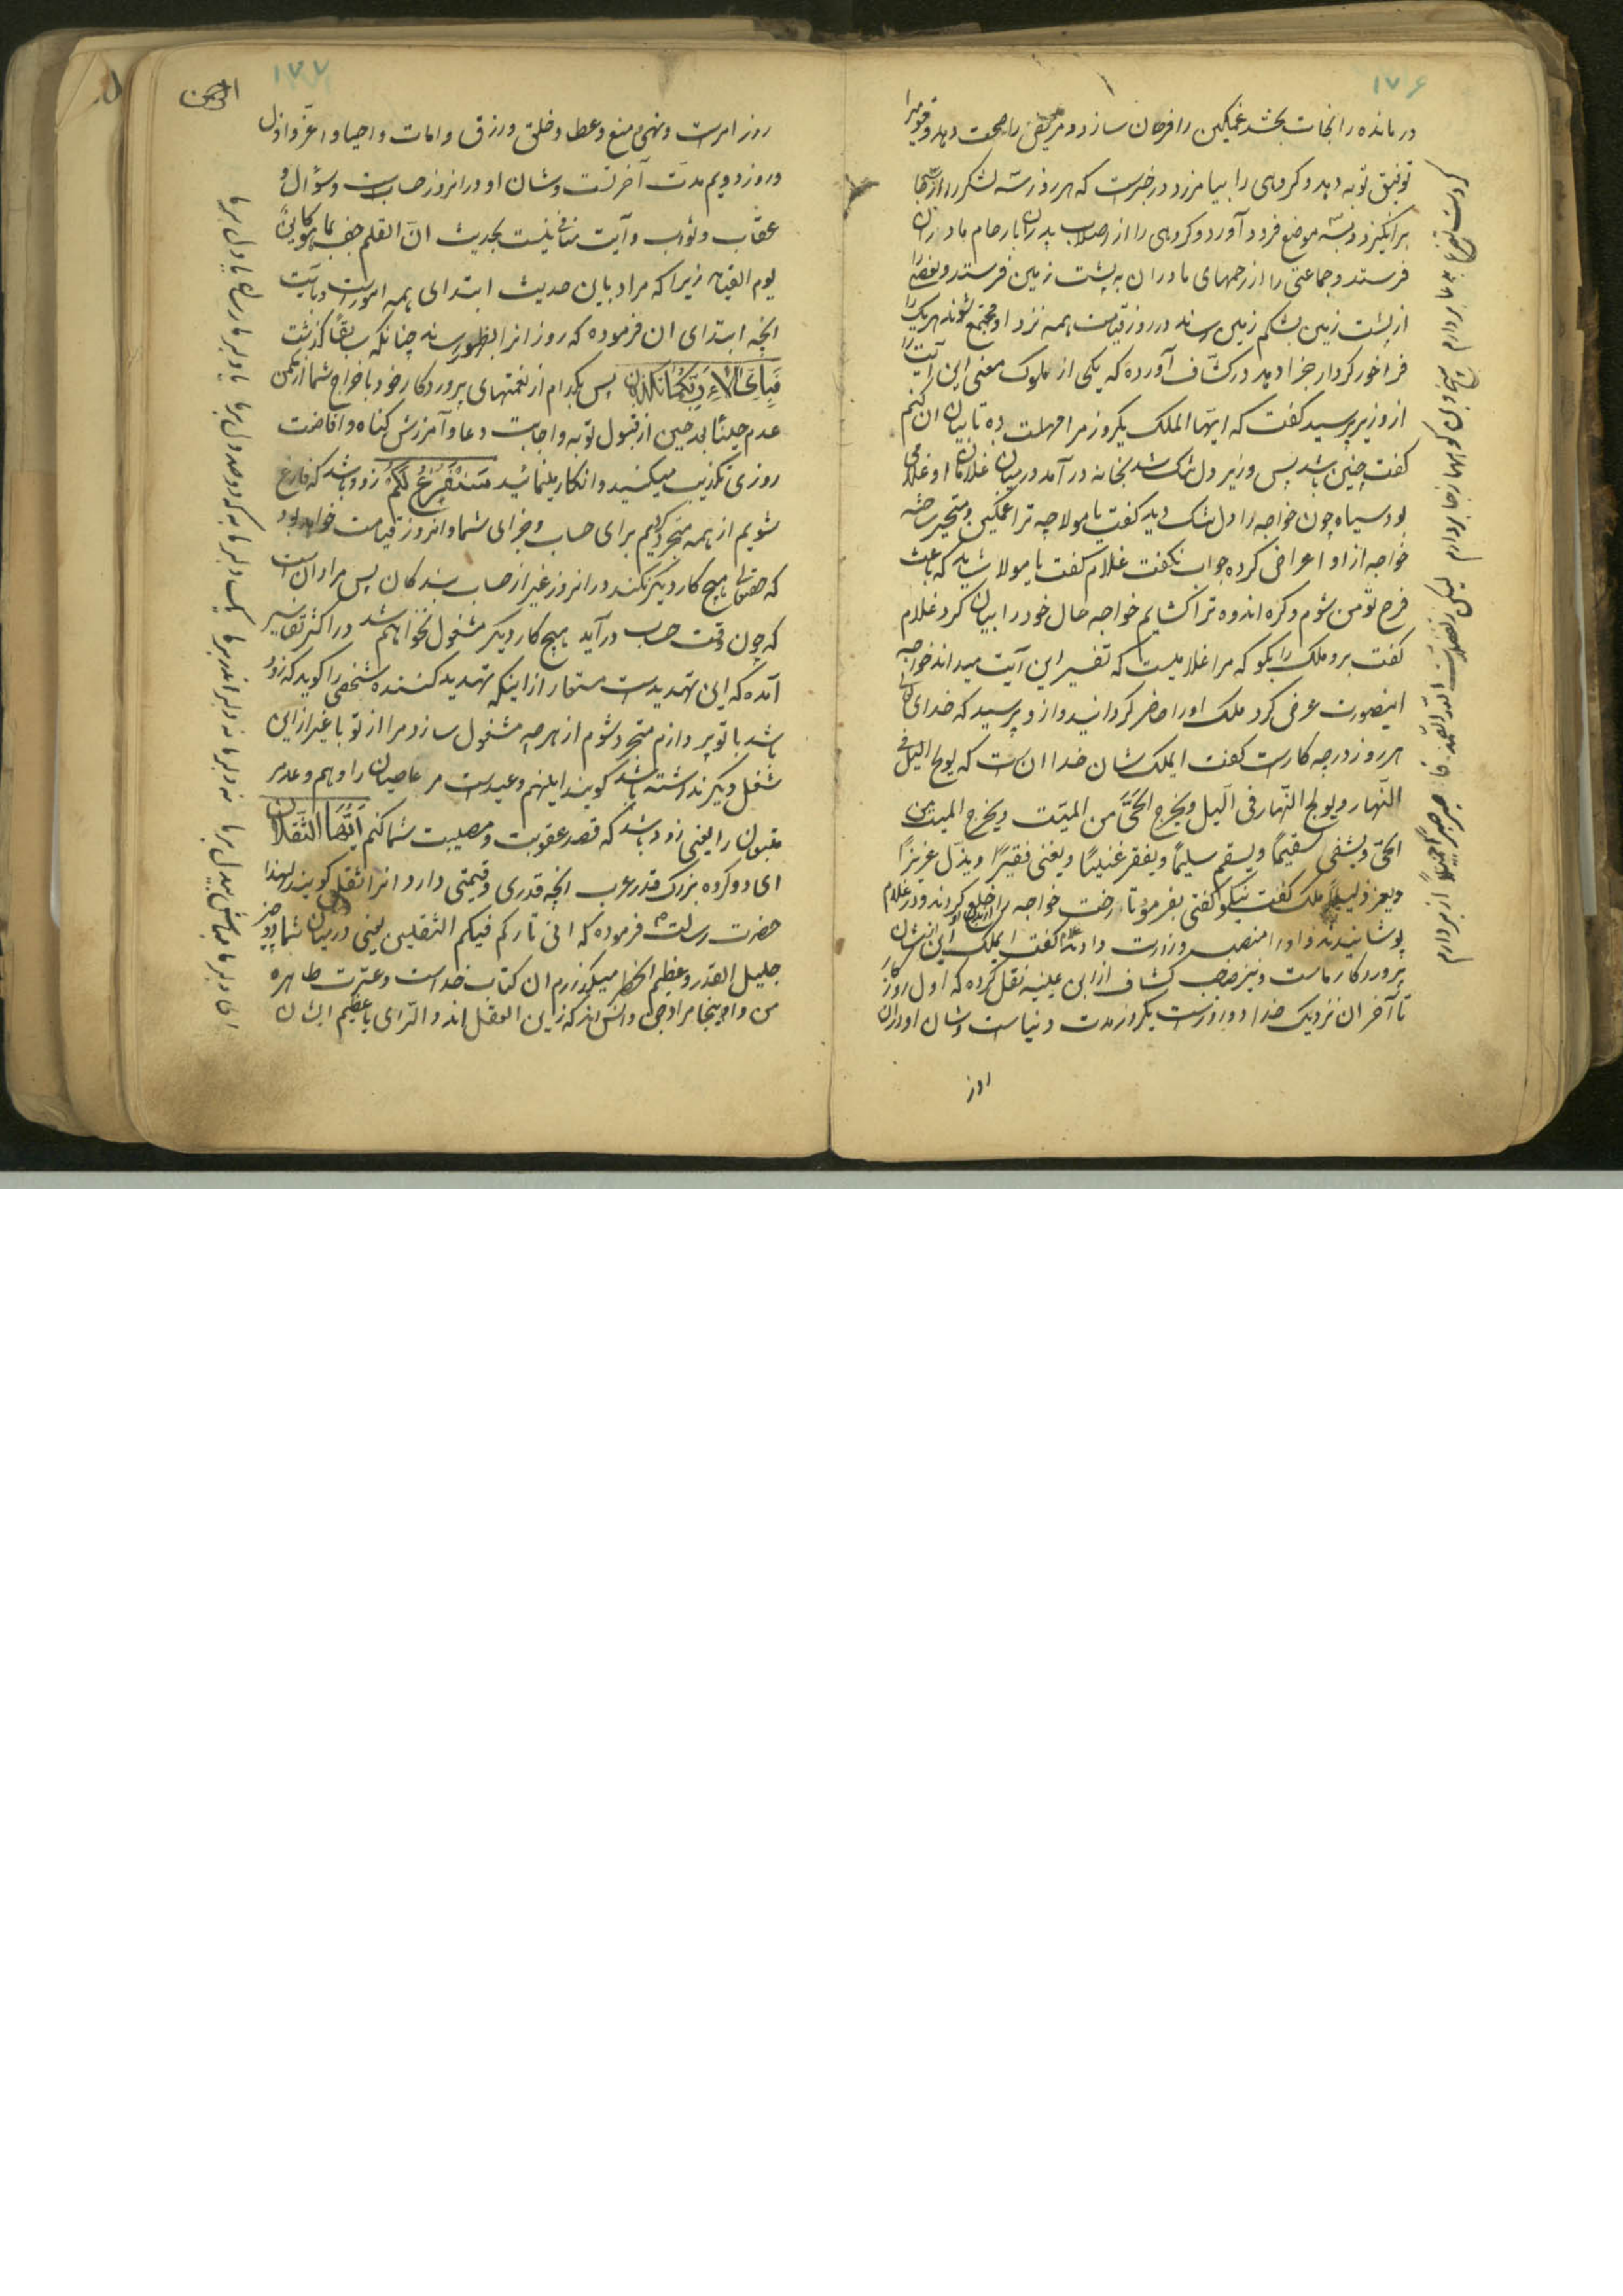 ۱۷۶
در مانده را نجات بخشد غمگین را فرحان سازد و مریض را صحت دهد و قومیرا
توفیق توبه دهد و کروهی را بیامرزد و در خبرست که هر روز سه لشکر را از سه جا
برانکیزد و بسه موضع فرود آورد و کروهی را از اصلاب پدران بارحام مادران
فرستد و جماعتی را از رحمهای مادران به پشت زمین فرستد و بعضی را
از پشت زمین بشکم زمین رساند و در روز قیامت همه نزد او مجتمع شوند هر یک را
فراخور کردار جزا دهد در کشّاف آورده که یکی از ملوک معنی این آیت را
از وزیر پرسید کفت که ایّها الملک یکروز مرا مهلت ده تا بیان ان کنم
کفت چنین باشد پس وزیر دل تنک شد بخانه در آمد در میان غلامان او غلامی
بود سیاه چون خواجه را دل تنک دید کفت یا مولا چه ترا غمکین و متحیر ساخته
خواجه از او اعراض کرده جواب نکفت غلام کفت یا مولا شاید که باعث
فرح تو من شوم و کره اندوه ترا کشایم خواجه حال خود را بیان کرد غلام
کفت برو ملک را بکو که مرا غلامیست که تفسیر این آیت میداند خواجه
اینصورت عرض کرد ملک او را حاضر کردانید و از و پرسید که خدای تعالی
هر روز در چه کارست کفت ایملک شان خدا ان ست که یولج اللیل فی
النّهار و یولج النّهار فی اللّیل و یخرج الحیَّ من المیّت و یخرج المیت من
الحیّ و یشفی سقیمًا و یسقم سلیمًا و یفقر غنیًا و یغنی فقیرًا و یذلّ عزیزًا
و یعز ذلیلًا ملک کفت نیکو کفتی بفرمود تا رخت خواجه را خلع کردند و در غلام
پوشانیدند و او را منصب وزارت دادند غلام کفت ایملک این از شان
پروردکار ماست و نیز صاحب کشاف از ابن عیینه نقل کرده که اول روز
تا آخر ان نزدیک خدا دو روزست یکروز مدت دنیاست و شان او در ان
روز
۱۷۷
الرحمن
روز امرست و نهی و منع و عطا و خلق و رزق و امات و احیا و اعز و اذل
و روز دویم مدت آخرتست و شان او در انروز حسابست و سؤال و
عقاب و ثواب و آیت منافی نیست بحدیث انّ القلم جف بما هو کاین
یوم القیمه زیرا که مراد بان حدیث ابتدای همه امورست و بآیت
انچه ابتدای ان فرموده که روز انرا بظهور رساند چنانکه سابقًا کذشت
فَبِاَیِّ اٰلاءِ رَبِّکُمَا تُکَذِّبان پس بکدام از نعمتهای پروردکار خود با خراج شما از مکمن
عدم حینًا بعد حین از قبول توبه و اجابت دعا و آمرزش کناه و افاضت
روزی تکذیب میکنید و انکار مینمائید سَنَفْرُغُ لَکُمْ زود باشد که فارغ
شویم از همه متجردیم برای حساب و جزای شما و انروز قیامت خواهد بود
که حقتعالی هیچ کار دیکر نکند در انروز غیر از حساب بندکان پس مراد ان است
که چون وقت حساب در آید هیچ کار دیکر مشغول نخواهم شد و در اکثر تفاسیر
آمده که این تهدیدست مستعار از اینکه تهدید کننده شخصی را کوید که زود
باشد با تو پردازم متجرد شوم از هر چه مشغول سازد مرا از تو با غیر از این
شغل دیکر نداشته باشد کویند اینهم وعیدست مر عاصیان را و هم وعد مر
متّقیان را یعنی زود باشد که قصد عقوبت و مصیبت شما کنم اَیُّهَا الثَّقَلان
ای دو کروه بزرک قدر عرب انچه قدری و قیمتی دارد انرا ثقل کویند لهذا
حضرت رسالت ص فرموده که انی تارکم فیکم الثقلین یعنی در میان شما دو چیز
جلیل القدر و عظیم الخطر میکذارم ان کتاب خداست و عترت طاهره
من و اینجا مراد جن و انس اند که زین العقل اند و الرای یا عظیم الشان